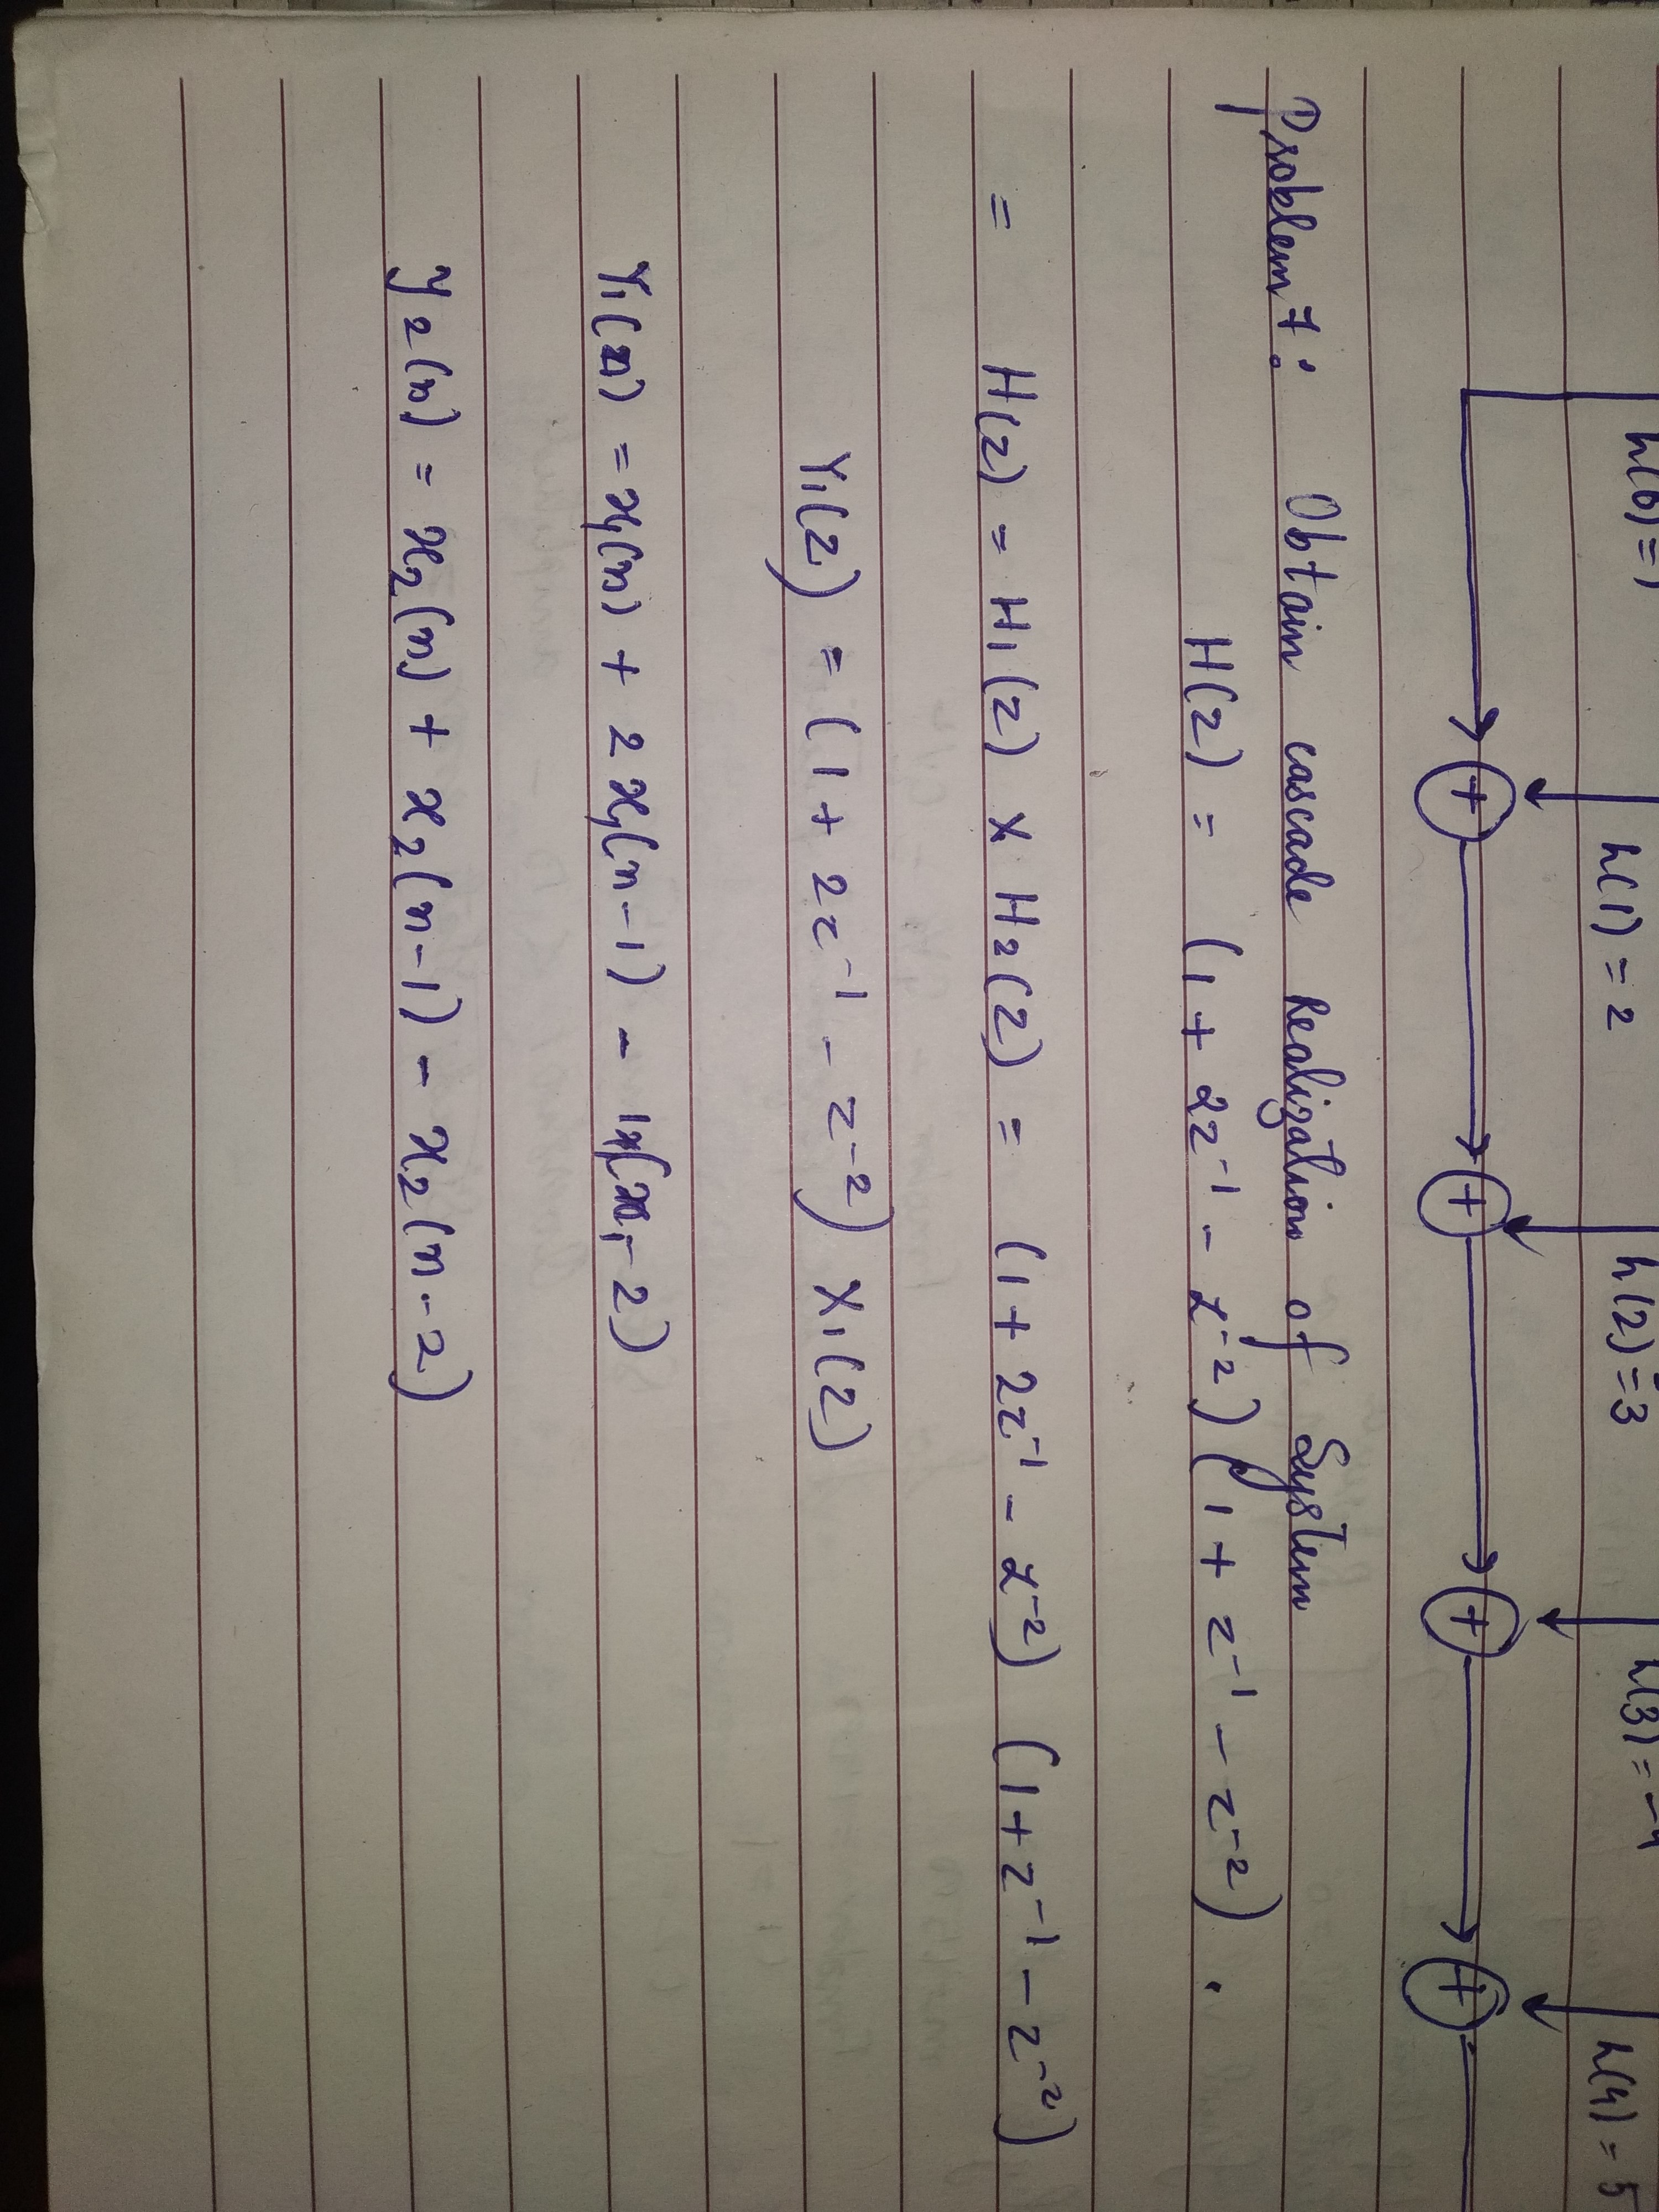 h(0)=1 h(1)=2 h(2)=3 h(3)=-4 h(4)=5
+ + + +
Problem 7: Obtain cascade Realization of System
H(z) = (1 + 2z⁻¹ - z⁻²) (1 + z⁻¹ - z⁻²).
= H(z) = H₁(z) x H₂(z) = (1 + 2z⁻¹ - z⁻²) (1 + z⁻¹ - z⁻²)
Y₁(z) = (1 + 2z⁻¹ - z⁻²) X₁(z)
Y₁(n) = x₁(n) + 2x₁(n-1) - 1x₁(n-2)
y₂(n) = x₂(n) + x₂(n-1) - x₂(n-2)